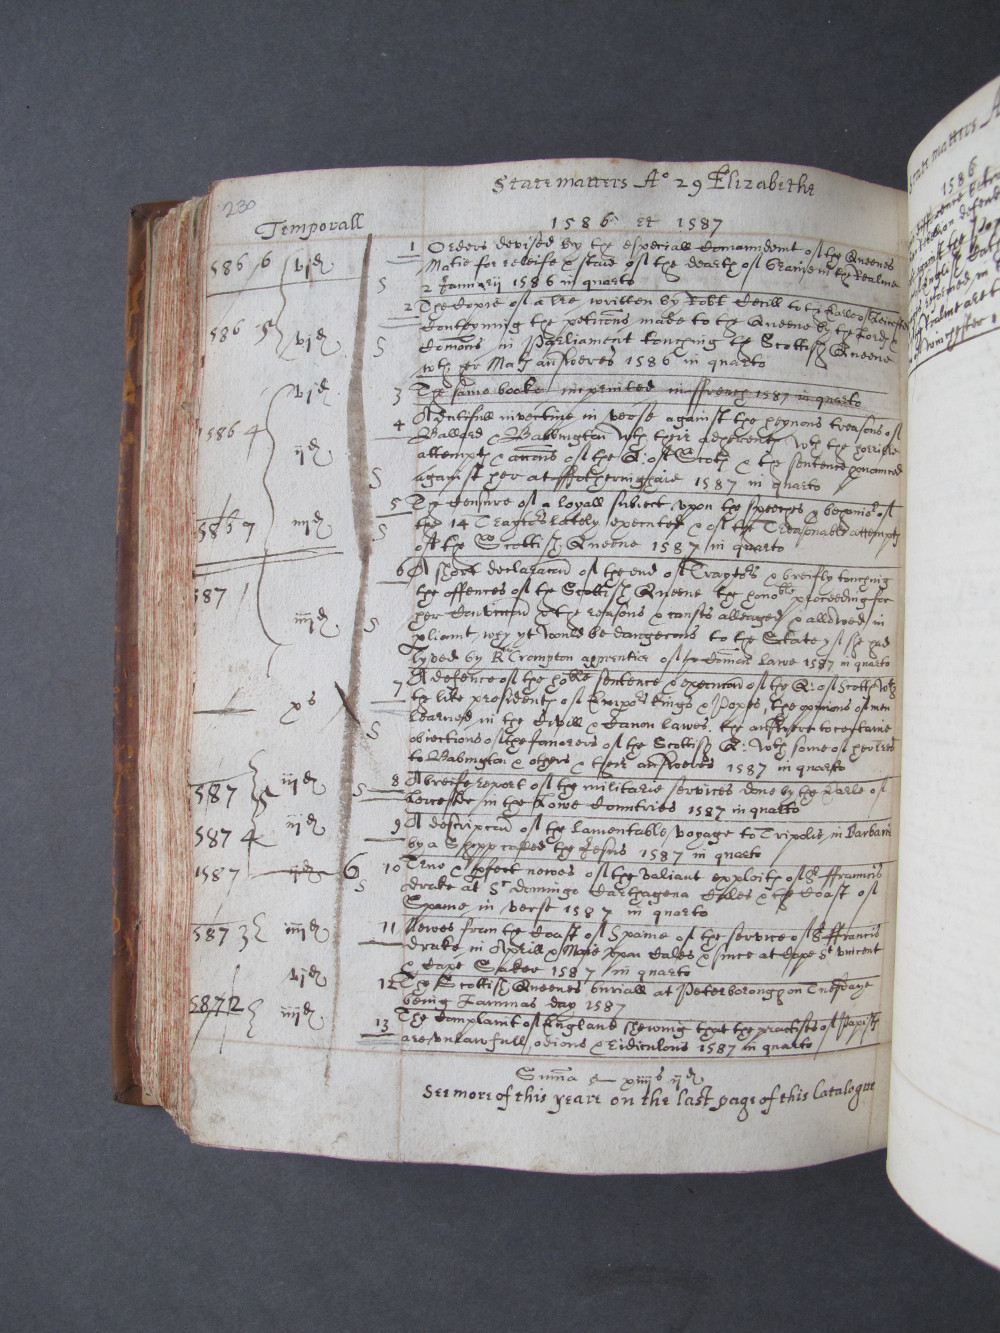 State matters Aº 29 Elizabethe
230
Temporall
1586 et 1587
1586 6 vjd
1 Orders devised by the especiall comaundemt of the Queenes
Matie for releife & staie of the dearth of Graine in the Realme
S
2 Januarij 1586 in quarto
1586 5 vjd
2 The Copie of a lre written by Robt Cecill to the Earle of Leicester
Conteyning the peticons made to the Queene by the Lords &
S
Comons in Parliament touching the Scottish Queene
wth her Maties answeres 1586 in quarto
vjd
3 The same booke imprinted in ffrench 1587 in quarto
1586 4
4 A dutifull invective in verse against the heynous treasons of
Ballard & Babbington wth their adherents wth the horrible
ijd
attempts & accons of the Q: of Scots & the sentence pnounced
S
against her at ffotheringhaie 1587 in quarto
1587 iiijd
5 The Censure of a loyall subiect upon the speeches & behavior of
S
the 14 Traytors lately executed & of the Treasonable attempts
of the Scottish Queene 1587 in quarto
6 A short declaracon of the end of Traytors & breifly touching
587
the offences of the Scottish Queene the honoble proceeding for
her Conviccon & the reasons & causes alleaged & allowed in
iiijd S
pliamt why yt would be dangerous to the State yf she had
lyved by R: Crompton apprentice of the Comon Lawe 1587 in quarto
7 A defence of the hoble sentence & execucon of the Q: of Scotts wth
xs
the like presidents of Empors Kings & Popes, the opinions of men
S
learned in the Civill & Canon lawes, the answere to certaine
obiections of the favorers of the Scottish Q: wth some of her lres
to Babington & others & their answeres 1587 in quarto
587 iijd S
8 A breife report of the militarie services done by the Earle of
Leicester in the Lowe Countries 1587 in quarto
587 4 iijd
9 A descripcon of the lamentable voyage to Tripolis in Barbarie
by a Shipp called the Jesus 1587 in quarto
1587 ijd 6
10 True & pfect newes of the valiant exploits of Sr ffrauncis
S
Drake at St Domingo Carthagena Cales & the Coast of
Spaine in verse 1587 in quarto
587 3 iiijd
11 Newes from the Coast of Spaine of the service of Sr ffrancis
Drake in Aprill & Maie upon Cales & since at Cape St vincent
& Cape Saker 1587 in quarto
vjd
12 The Scottish Queenes buriall at Peterborough on Tuesdaye
being Lammas day 1587
5872 iiijd
13 The Complaint of England shewing that the practises of Papists
are unlawfull, odious & ridiculous 1587 in quarto
Suma xiiijs ijd
See more of this yeare on the last page of this Catalogue
State matters A
1586